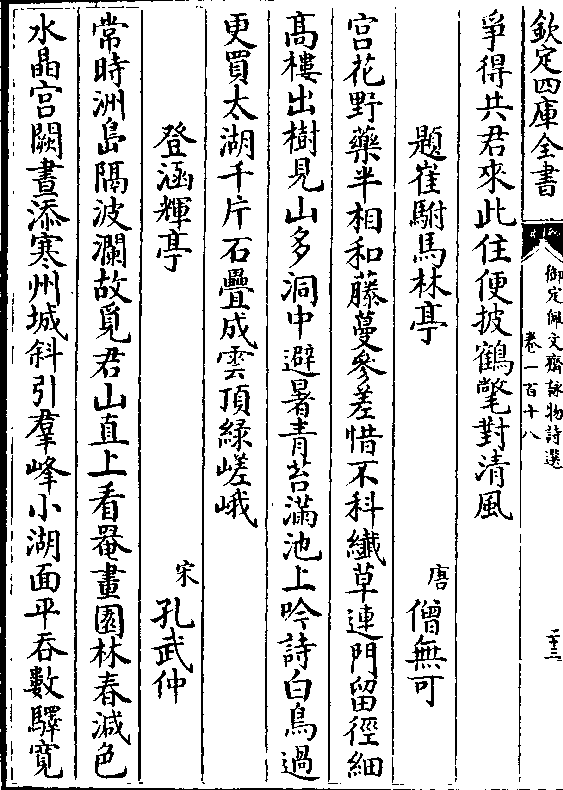 欽定四庫全書
御定佩文齋詠物詩選
卷一百十八
二十三
爭得共君來此住便披鶴氅對清風
題崔駙馬林亭
唐 僧無可
宮花野藥半相和藤蔓參差惜不科纖草連門留徑細
高樓出樹見山多洞中避暑青苔滿池上吟詩白鳥過
更買太湖千片石疊成雲頂綠嵯峨
登涵輝亭
宋 孔武仲
常時洲島隔波瀾故覓君山直上看罨畫園林春減色
水晶宮闕晝添寒州城斜引羣峰小湖面平吞數驛寬